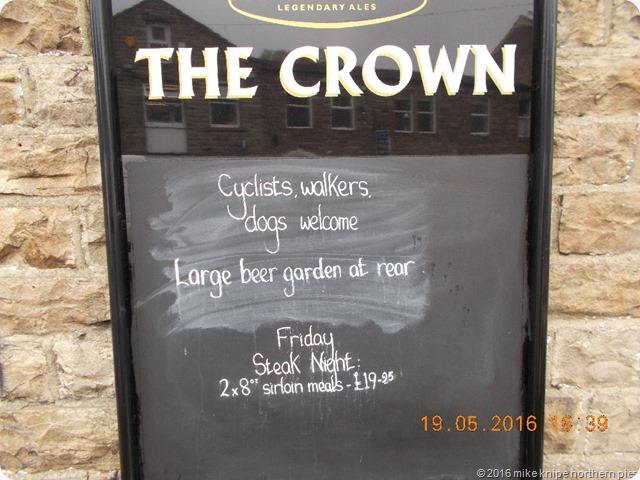 LEGENDARY ALES
THE CROWN
Cyclists, walkers,
dogs welcome
Large beer garden at rear
Friday
Steak Night:
2 x 8oz sirloin meals - £19-95
19.05.2016 16:39
© 2016 mike knipe northern pies